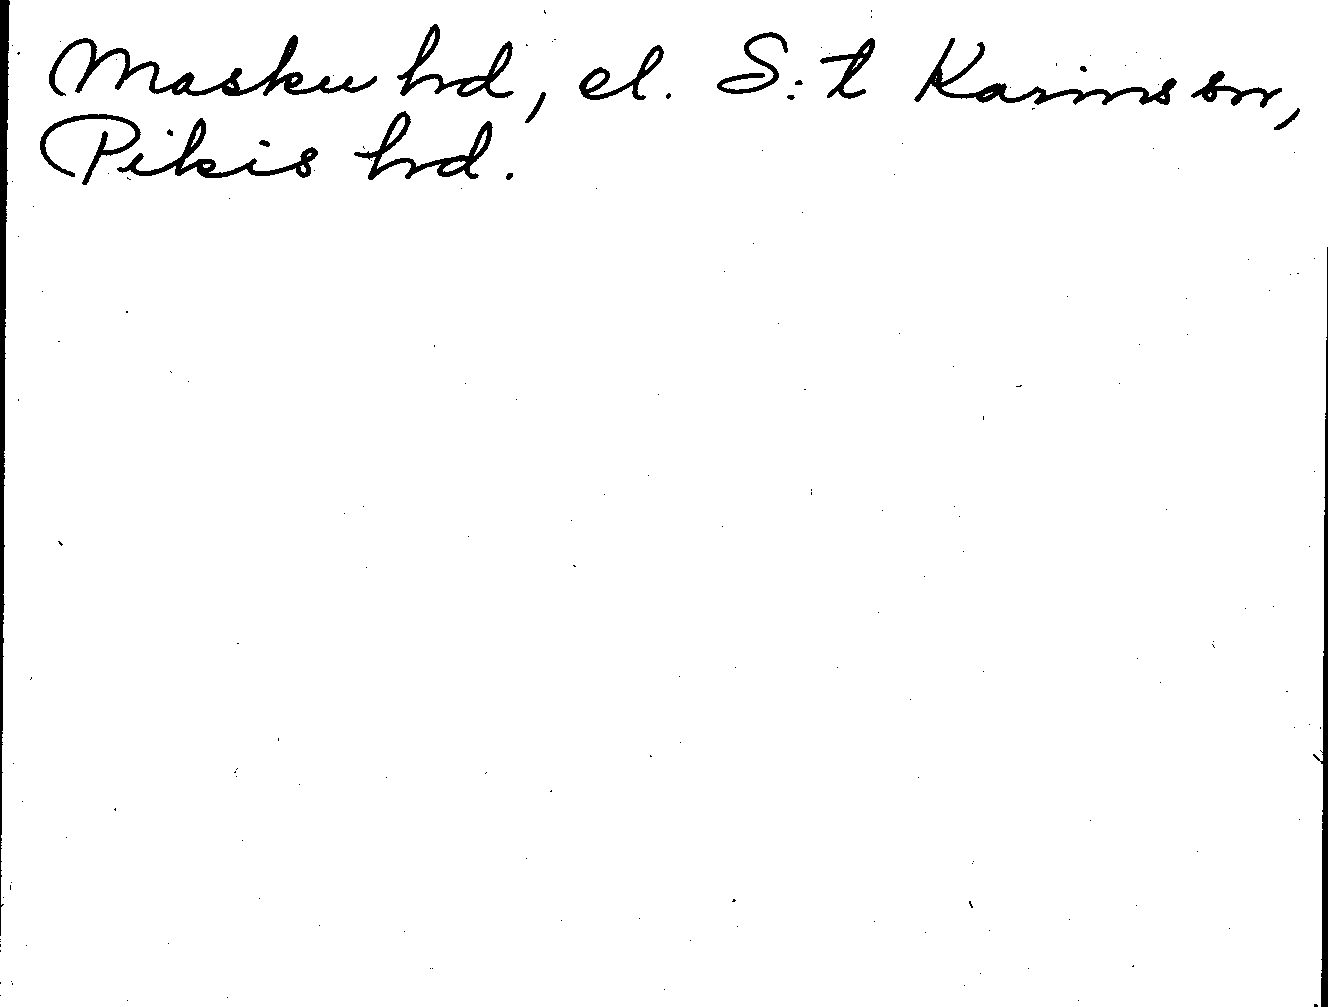 Masku hd, el. S:t Karins sn,
Pikis hd.